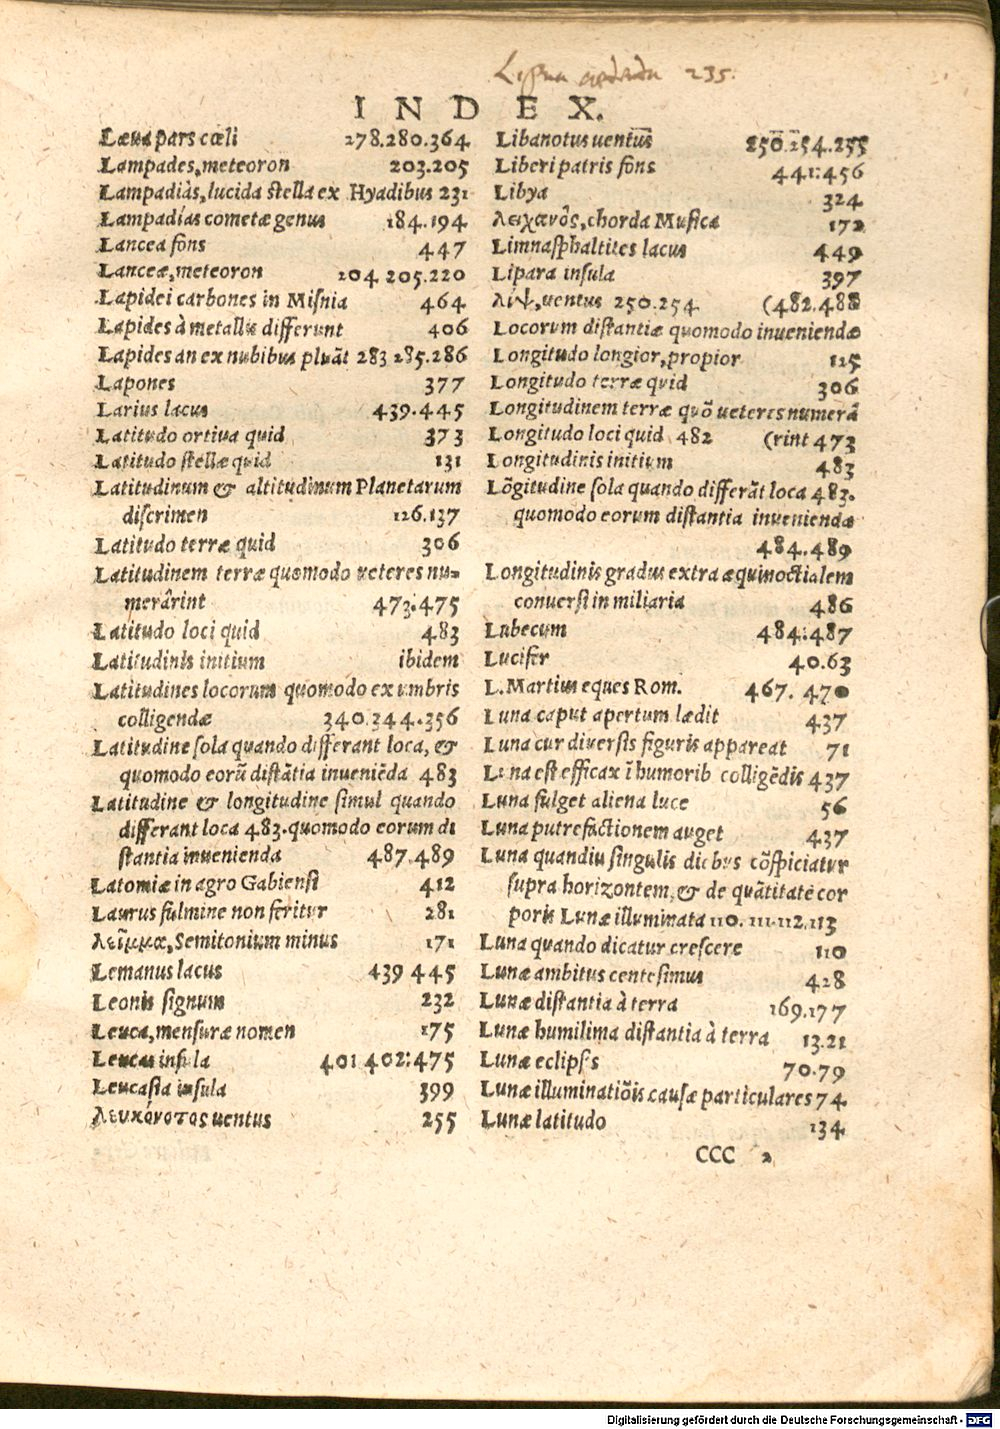 235.
INDEX.
Læua pars cœli 278.280.364
Lampades, meteoron 203.205
Lampadias, lucida stella ex Hyadibus 231
Lampadías cometæ genus 184.194
Lancea fons 447
Lanceæ, meteoron 204 205.220
Lapidei carbones in Misnia 464
Lapides à metallis differunt 406
Lapides an ex nubibus pluãt 283 285.286
Lapones 377
Larius lacus 439.445
Latitudo ortiua quid 373
Latitudo stellæ quid 131
Latitudinum & altitudinum Planetarum
discrimen 126.137
Latitudo terræ quid 306
Latitudinem terræ quomodo ueteres nu-
merârint 473.475
Latitudo loci quid 483
Latitudinis initium ibidem
Latitudines locorum quomodo ex umbris
colligendæ 340.344.356
Latitudine sola quando differant loca, &
quomodo eorũ distãtia inueniẽda 483
Latitudine & longitudine simul quando
differant loca 483. quomodo eorum di
stantia inuenienda 487.489
Latomiæ in agro Gabiensi 412
Laurus fulmine non feritur 281
λεῖμμα, Semitonium minus 171
Lemanus lacus 439 445
Leonis signum 232
Leuca, mensuræ nomen 175
Leucas insula 401 402:475
Leucasia insula 399
λευκόνοτος uentus 255
Libanotus uentus 250.254.255
Liberi patris fons 441:456
Libya 324
λειχανὸς, chorda Musicæ 172
Limnasphaltites lacus 449
Lipara insula 397
λίψ, uentus 250.254 (482.488
Locorum distantiæ quomodo inueniendæ
Longitudo longior, propior 125
Longitudo terræ quid 306
Longitudinem terræ quõ ueteres numerâ
Longitudo loci quid 482 (rint 473
Longitudinis initium 483
Lõgitudine sola quando differãt loca 483.
quomodo eorum distantia inueniendæ
484.489
Longitudinis gradus extra æquinoctialem
conuersi in miliaria 486
Lubecum 484:487
Lucifer 40.63
L. Martius eques Rom. 467. 470
Luna caput apertum lædit 437
Luna cur diuersis figuris appareat 71
Luna est efficax ĩ humorib colligẽdis 437
Luna fulget aliena luce 56
Luna putrefactionem auget 437
Luna quandiu singulis diebus cõspiciatur
supra horizontem, & de quãtitate cor
poris Lunæ illuminata 110. 111.112.113
Luna quando dicatur crescere 110
Lunæ ambitus centesimus 428
Lunæ distantia à terra 169.177
Lunæ humilima distantia à terra 13.21
Lunæ eclipsis 70.79
Lunæ illuminatiõis causæ particulares 74
Lunæ latitudo 134
CCC 2
Digitalisierung gefördert durch die Deutsche Forschungsgemeinschaft - DFG